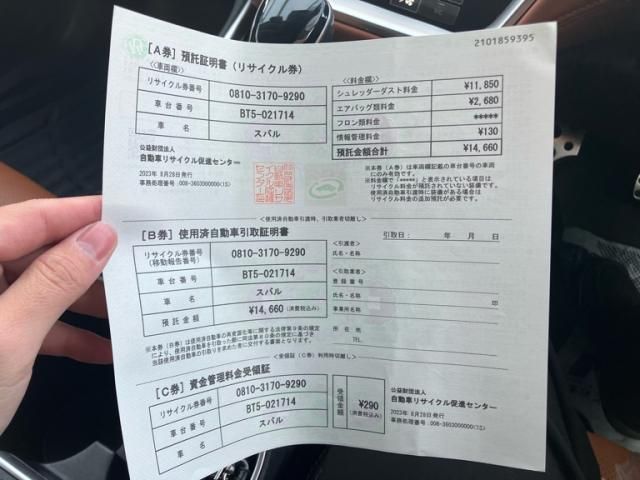 2101859395
[A券] 預託証明書 (リサイクル券)
<<車両欄>>
リサイクル券番号 0810-3170-9290
車台番号 BT5-021714
車名 スバル
<<料金欄>>
シュレッダーダスト料金 ¥11,850
エアバッグ類料金 ¥2,680
フロン類料金 *****
情報管理料金 ¥130
預託金額合計 ¥14,660
公益財団法人
自動車リサイクル促進センター
2023年 8月28日発行
事務処理番号:008-3603000000(1S)
※本券(A券)は車両欄記載の車台番号の車両
にのみ有効です。
※料金欄で「*****」と表示されている項目は
リサイクル料金が預託されていない装備です。
使用済自動車引渡時に装備がある場合は
リサイクル料金の追加預託が必要です。
<使用済自動車引渡時、引取業者切離し>
[B券] 使用済自動車引取証明書
引取日: 年 月 日
リサイクル券番号
(移動報告番号) 0810-3170-9290
車台番号 BT5-021714
車名 スバル
預託金額 ¥14,660 (消費税込み)
<引渡者>
氏名・名称
<引取業者>
登録番号
氏名・名称 印
事業所名
所在地
TEL
※本券(B券)は使用済自動車の再資源化等に関する法律第9条の規定
により、使用済自動車を引取った際に同法第80条の規定に基づき
当該使用済自動車の引取りを求めた者に交付する書面となります。
<受領証(C券)利用時切離し>
[C券] 資金管理料金受領証
リサイクル券番号 0810-3170-9290
車台番号 BT5-021714
車名 スバル
受領金額 ¥290
(消費税込み)
公益財団法人
自動車リサイクル促進センター
2023年 8月28日発行
事務処理番号:008-3603000000(1S)